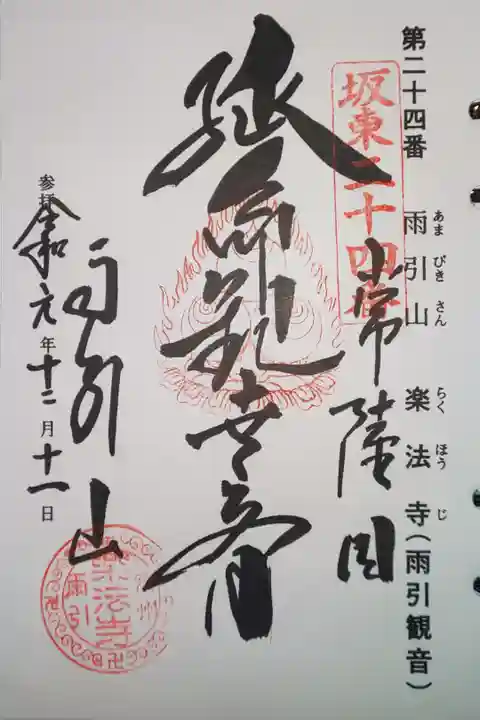 第二十四番 雨引山 楽法寺(雨引観音)
あま びき さん らく ほう じ
坂東二十四番
常陸国
延命観世音
雨引山
参拝 令和元年十二月十一日
雨引